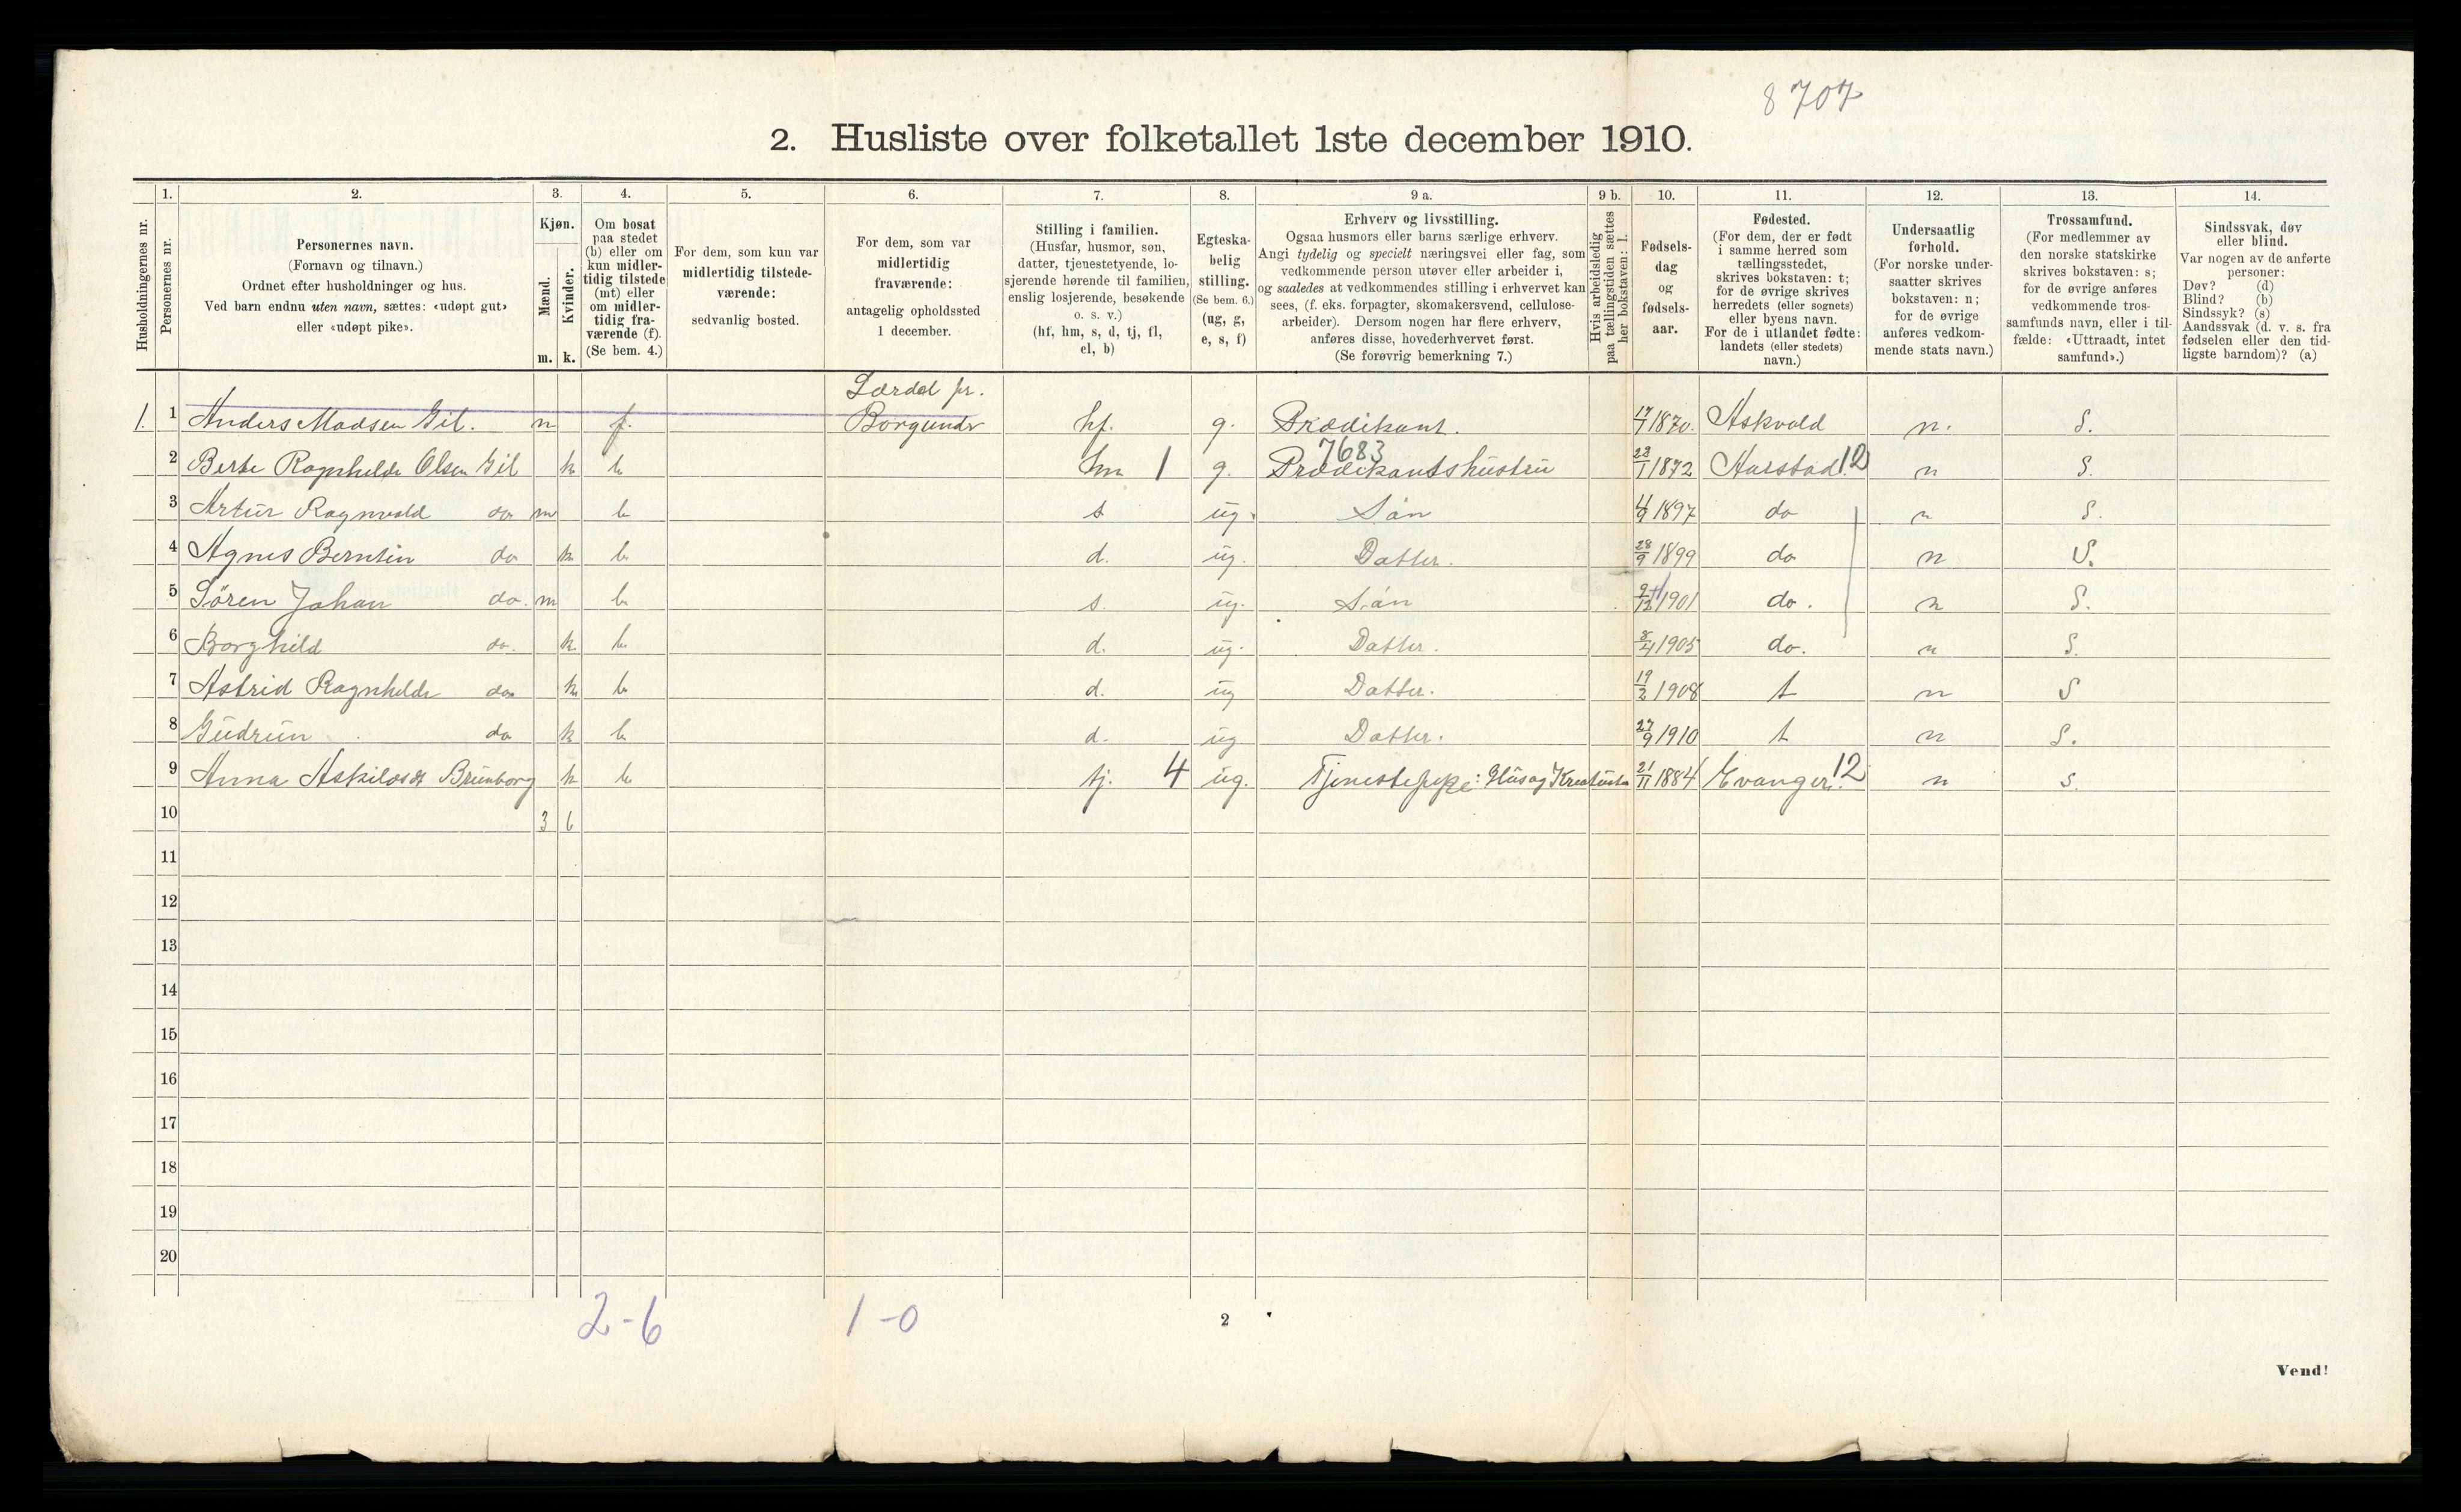 8707
2. Husliste over folketallet 1ste december 1910.
Husholdningernes nr.
1.
Personernes nr.
2.
Personernes navn.
(Fornavn og tilnavn.)
Ordnet efter husholdninger og hus.
Ved barn endnu uten navn, sættes: «udøpt gut»
eller «udøpt pike».
3.
Kjøn.
Mænd.
Kvinder.
m. k.
4.
Om bosat
paa stedet
(b) eller om
kun midler-
tidig tilstede
(mt) eller
om midler-
tidig fra-
værende (f).
(Se bem. 4.)
5.
For dem, som kun var
midlertidig tilstede-
værende:
sedvanlig bosted.
6.
For dem, som var
midlertidig
fraværende:
antagelig opholdssted
1 december.
7.
Stilling i familien.
(Husfar, husmor, søn,
datter, tjenestetyende, lo-
sjerende hørende til familien,
enslig losjerende, besøkende
o. s. v.)
(hf, hm, s, d, tj, fl,
el, b)
8.
Egteska-
belig
stilling.
(Se bem. 6.)
(ug, g,
e, s, f)
9 a.
Erhverv og livsstilling.
Ogsaa husmors eller barns særlige erhverv.
Angi tydelig og specielt næringsvei eller fag, som
vedkommende person utøver eller arbeider i,
og saaledes at vedkommendes stilling i erhvervet kan
sees, (f. eks. forpagter, skomakersvend, cellulose-
arbeider). Dersom nogen har flere erhverv,
anføres disse, hovederhvervet først.
(Se forøvrig bemerkning 7.)
9 b.
Hvis arbeidsledig
paa tællingstiden sættes
her bokstaven: l.
10.
Fødsels-
dag
og
fødsels-
aar.
11.
Fødested.
(For dem, der er født
i samme herred som
tællingsstedet,
skrives bokstaven: t;
for de øvrige skrives
herredets (eller sognets)
eller byens navn.
For de i utlandet fødte:
landets (eller stedets)
navn.)
12.
Undersaatlig
forhold.
(For norske under-
saatter skrives
bokstaven: n;
for de øvrige
anføres vedkom-
mende stats navn.)
13.
Trossamfund.
(For medlemmer av
den norske statskirke
skrives bokstaven: s;
for de øvrige anføres
vedkommende tros-
samfunds navn, eller i til-
fælde: «Uttraadt, intet
samfund».)
14.
Sindssvak, døv
eller blind.
Var nogen av de anførte
personer:
Døv? (d)
Blind? (b)
Sindssyk? (s)
Aandssvak (d. v. s. fra
fødselen eller den tid-
ligste barndom)? (a)
Lærdal pr.
1. 1 Anders Madsen Gil. m f. Borgund hf. g. Prædikant. 17/7 1870. Askvold n. S.
7683
2 Berte Ragnhilde Olsen Gil k b hm 1 g. Prædikantshustru 23/1 1872 Aarstad 12 n S.
3 Artur Ragnvald do m b s ug. Søn 4/9 1897 do n S.
4 Agnes Berntin do k b d. ug. Datter. 28/9 1899 do n S.
5 Søren Johan do. m b s. ug. Søn 9/12 1901 do. n S.
6 Borghild do. k. b d. ug. Datter. 8/4 1905 do. n S.
7 Astrid Ragnhilde do k b d. ug Datter. 19/2 1908 t n S
8 Gudrun do k b d. ug Datter. 27/9 1910 t n S.
9 Anna Askilosdt Brunborg k b tj. 4 ug. Tjenestepige: Hus og Kreaturst 21/11 1884 Evanger. 12 n s.
10 3 6
11
12
13
14
15
16
17
18
19
20
2-6 1-0
2
Vend!